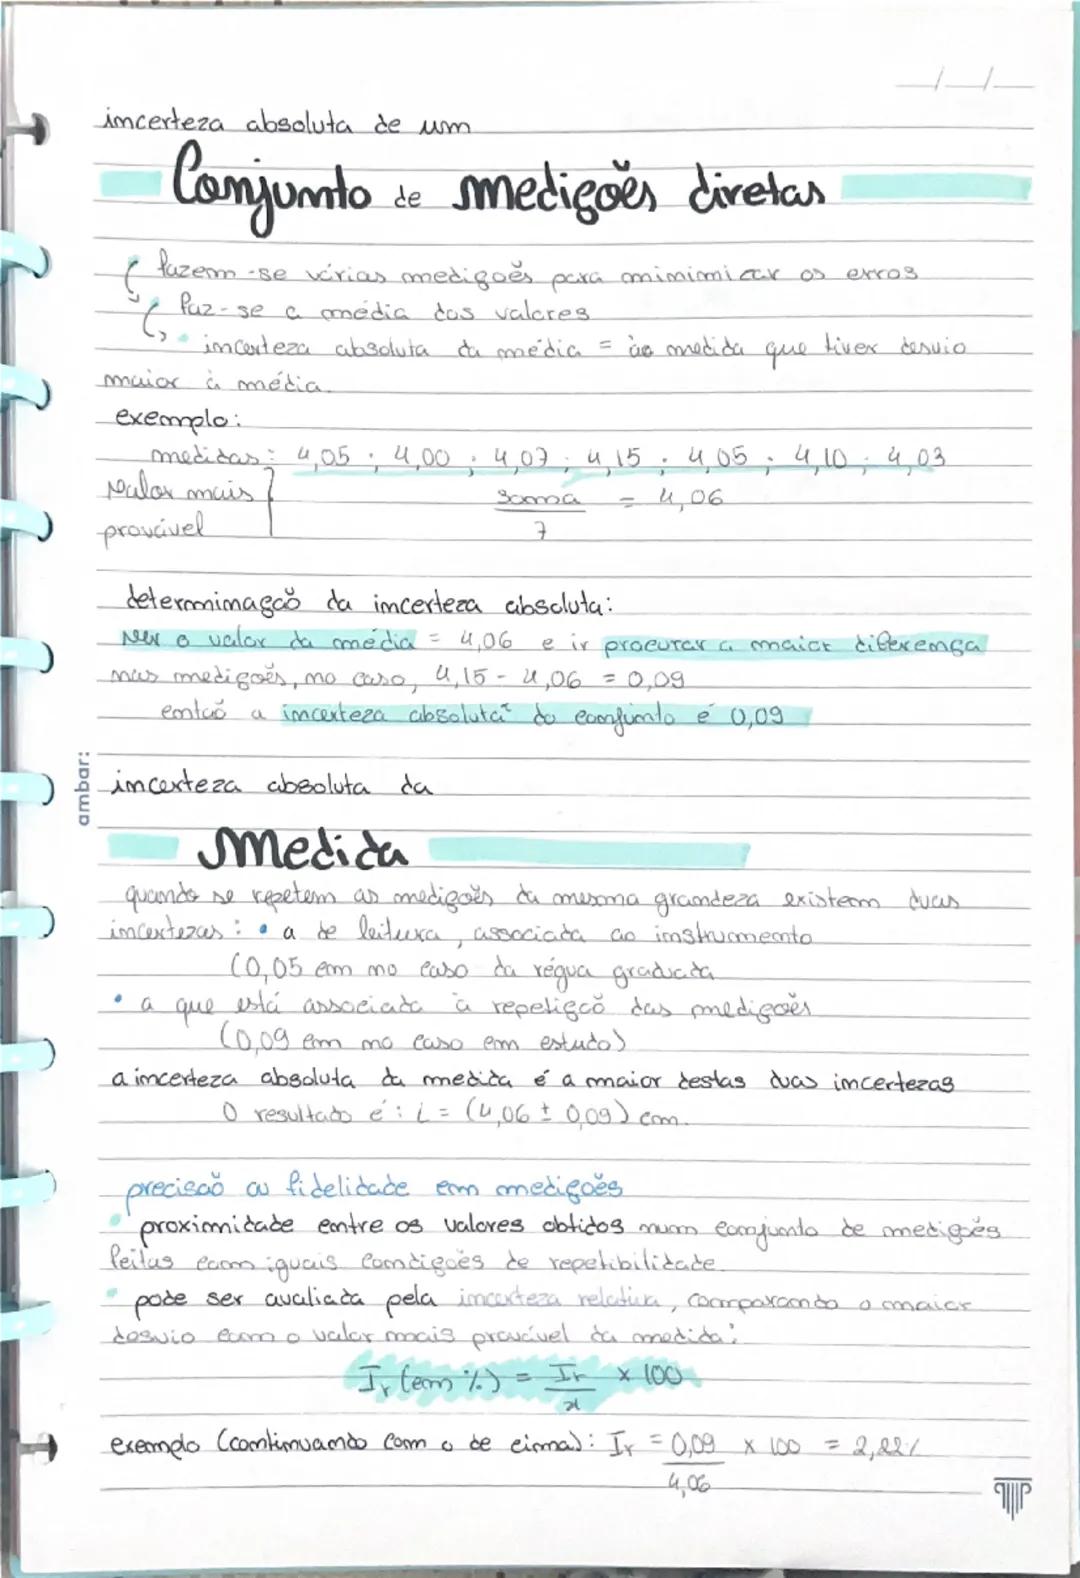 __/__/__
imcerteza absoluta de um
Conjunto de medições diretas
fazem-se várias medições para minimizar os erros
faz-se a média dos valores
• incerteza absoluta da média = à medida que tiver desvio
maior à média.
exemplo:
medidas: 4,05 ; 4,00 ; 4,07 ; 4,15 ; 4,05 ; 4,10 ; 4,03
valor mais soma = 4,06
provável 7
determinação da incerteza absoluta:
ver o valor da média = 4,06 e ir procurar a maior diferença
nas medições, no caso, 4,15 - 4,06 = 0,09
então a incerteza absoluta do conjunto é 0,09
ambar:
incerteza absoluta da
Medida
quando se repetem as medições da mesma grandeza existem duas
incertezas: • a de leitura, associada ao instrumento
(0,05 cm no caso da régua graduada
• a que está associada à repetição das medições
(0,09 cm no caso em estudo)
a incerteza absoluta da medida é a maior destas duas incertezas
O resultado é: L = (4,06 ± 0,09) cm.
precisão ou fidelidade em medições
• proximidade entre os valores obtidos num conjunto de medições
feitas com iguais condições de repetibilidade.
• pode ser avaliada pela incerteza relativa, comparando o maior
desvio com o valor mais provável da medida:
Ir (em %) = Ir/x × 100
exemplo (continuando com o de cima): Ir = 0,09 × 100 = 2,22%
4,06